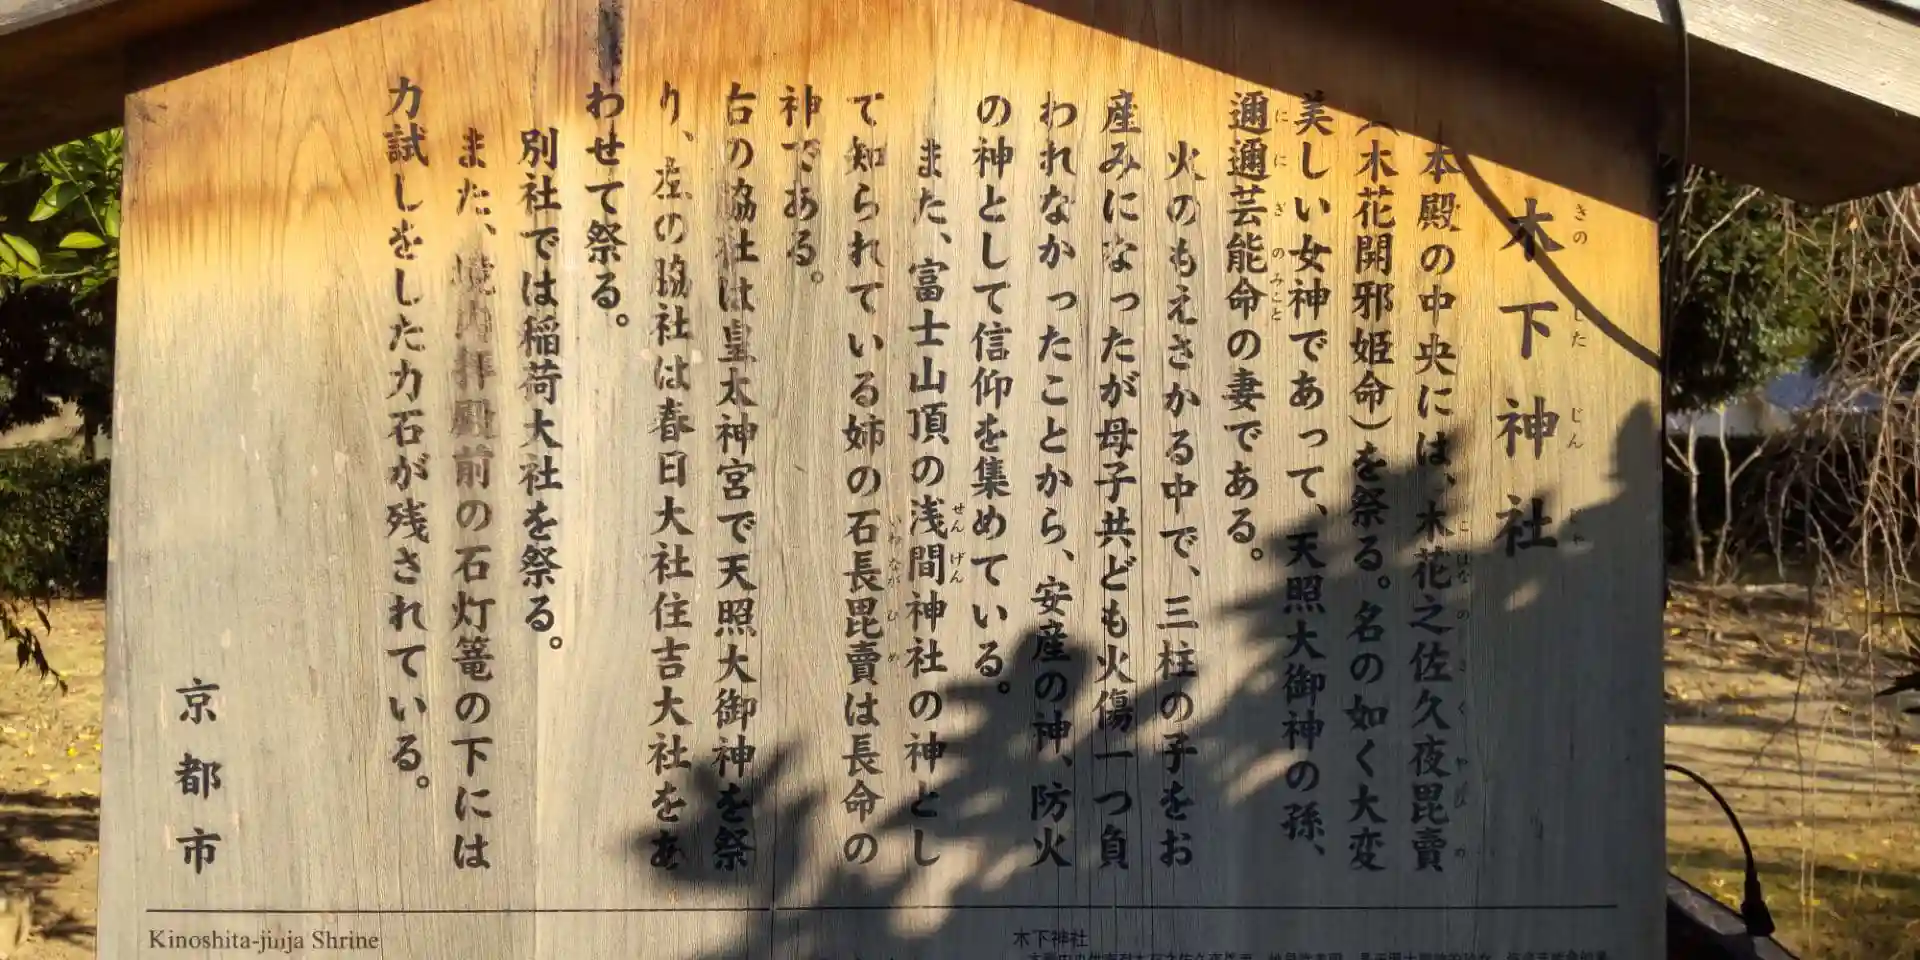 木下神社
きのしたじんじゃ
本殿の中央には、木花之佐久夜毘賣
こはなのさくやひめ
(木花開邪姫命)を祭る。名の如く大変
美しい女神であって、天照大御神の孫、
邇邇芸能命の妻である。
ににぎのみこと
火のもえさかる中で、三柱の子をお
産みになったが母子共ども火傷一つ負
われなかったことから、安産の神、防火
の神として信仰を集めている。
また、富士山頂の浅間神社の神とし
せんげん
て知られている姉の石長毘賣は長命の
いわながひめ
神である。
右の脇社は皇太神宮で天照大御神を祭
り、左の脇社は春日大社住吉大社をあ
わせて祭る。
別社では稲荷大社を祭る。
また、境内拝殿前の石灯篭の下には
力試しをした力石が残されている。
京都市
Kinoshita-jinja Shrine
木下神社